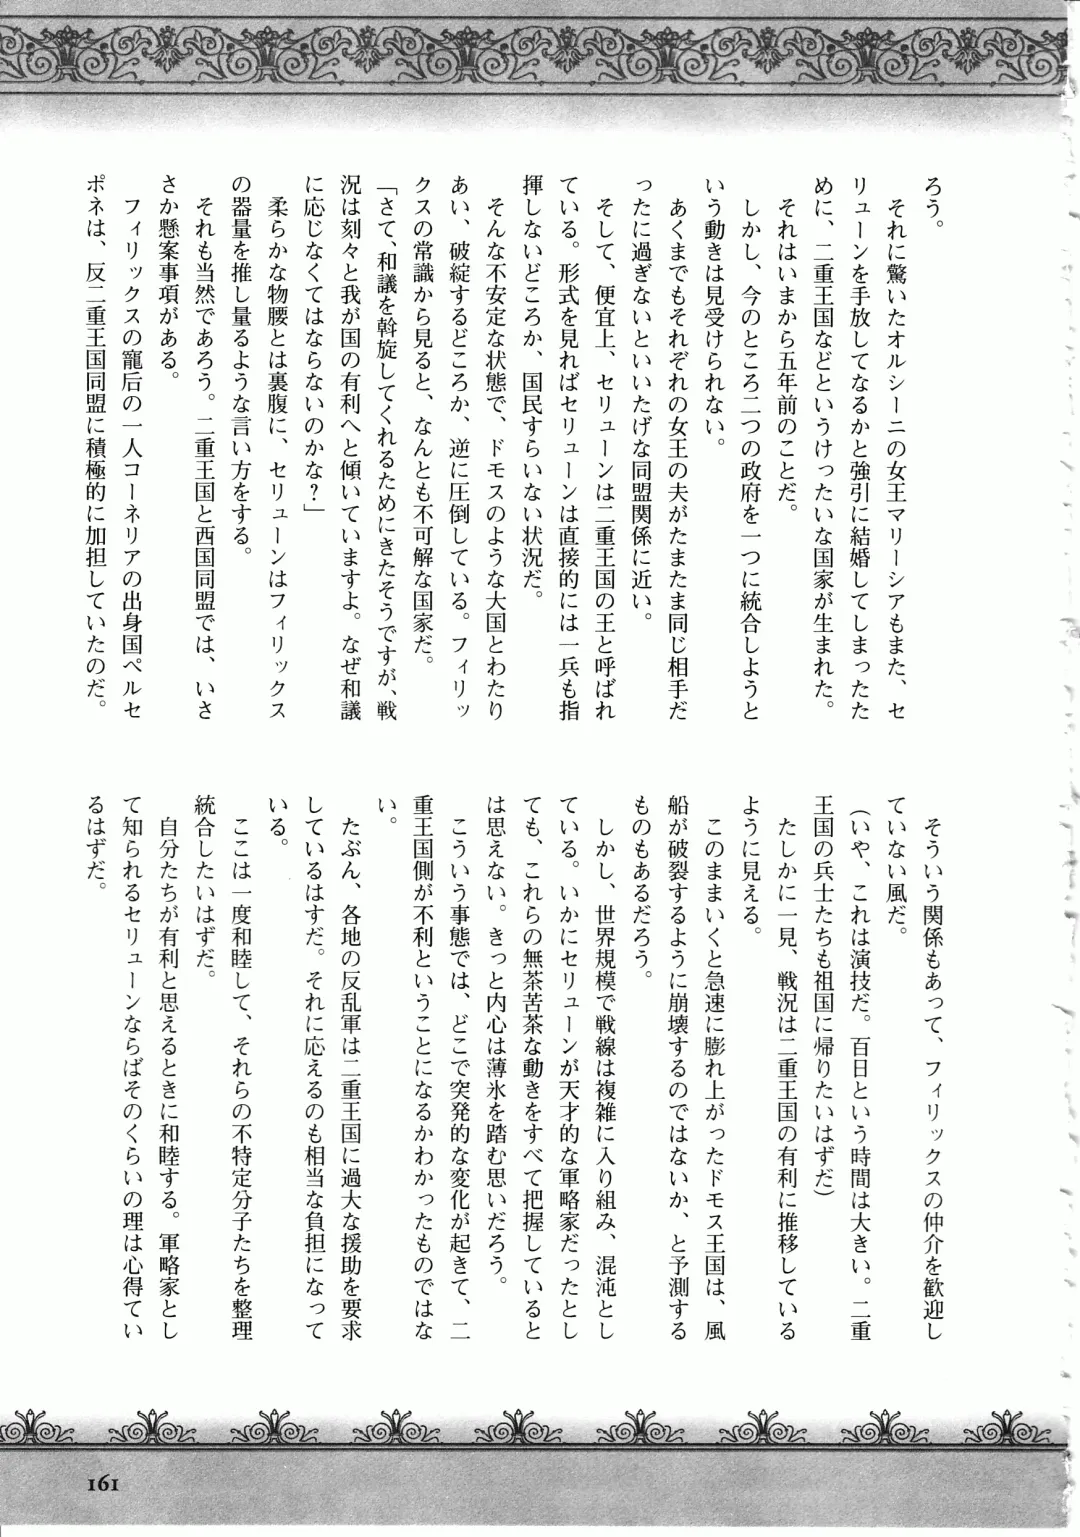 ろう。
　それに驚いたオルシーニの女王マリーシアもまた、セ
リューンを手放してなるかと強引に結婚してしまったた
めに、二重王国などというけったいな国家が生まれた。
　それはいまから五年前のことだ。
　しかし、今のところ二つの政府を一つに統合しようと
いう動きは見受けられない。
　あくまでもそれぞれの女王の夫がたまたま同じ相手だ
ったに過ぎないといいたげな同盟関係に近い。
　そして、便宜上、セリューンは二重王国の王と呼ばれ
ている。形式を見ればセリューンは直接的には一兵も指
揮しないどころか、国民すらいない状況だ。
　そんな不安定な状態で、ドモスのような大国とわたり
あい、破綻するどころか、逆に圧倒している。フィリッ
クスの常識から見ると、なんとも不可解な国家だ。
「さて、和議を斡旋してくれるためにきたそうですが、戦
況は刻々と我が国の有利へと傾いていますよ。なぜ和議
に応じなくてはならないのかな？」
　柔らかな物腰とは裏腹に、セリューンはフィリックス
の器量を推し量るような言い方をする。
　それも当然であろう。二重王国と西国同盟では、いさ
さか懸案事項がある。
　フィリックスの寵后の一人コーネリアの出身国ペルセ
ポネは、反二重王国同盟に積極的に加担していたのだ。
　そういう関係もあって、フィリックスの仲介を歓迎し
ていない風だ。
（いや、これは演技だ。百日という時間は大きい。二重
王国の兵士たちも祖国に帰りたいはずだ）
　たしかに一見、戦況は二重王国の有利に推移している
ように見える。
　このままいくと急速に膨れ上がったドモス王国は、風
船が破裂するように崩壊するのではないか、と予測する
ものもあるだろう。
　しかし、世界規模で戦線は複雑に入り組み、混沌とし
ている。いかにセリューンが天才的な軍略家だったとし
ても、これらの無茶苦茶な動きをすべて把握していると
は思えない。きっと内心は薄氷を踏む思いだろう。
　こういう事態では、どこで突発的な変化が起きて、二
重王国側が不利ということになるかわかったものではな
い。
　たぶん、各地の反乱軍は二重王国に過大な援助を要求
しているはすだ。それに応えるのも相当な負担になって
いる。
　ここは一度和睦して、それらの不特定分子たちを整理
統合したいはずだ。
　自分たちが有利と思えるときに和睦する。軍略家とし
て知られるセリューンならばそのくらいの理は心得てい
るはずだ。
161